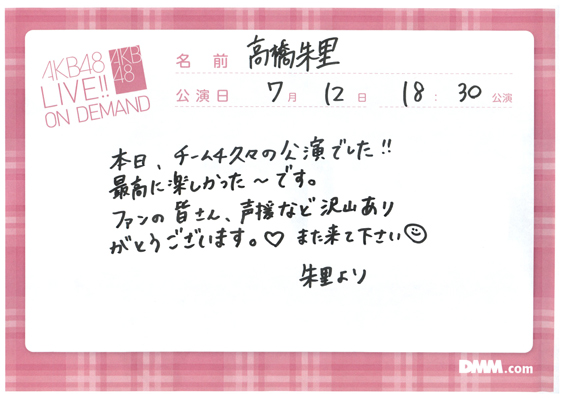 AKB48
LIVE!!
ON DEMAND
AKB
48
名前 高橋朱里
公演日 7月 12日 18:30公演
本日、チーム4久々の公演でした!!
最高に楽しかった〜です。
ファンの皆さん、声援など沢山あり
がとうございます。♡ また来て下さい☺
朱里より
DMM.com